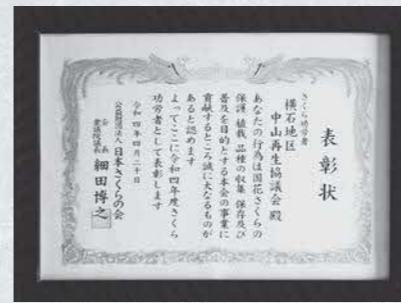 表彰状
さくら功労者
横石地区
中山再生協議会 殿
あなたの行為は国花さくらの
保護 植栽 品種の収集 保存及び
普及を目的とする本会の事業に
貢献するところ誠に大なるものが
あると認めます
よってここに令和四年度さくら
功労者として表彰します
令和四年四月二十日
公益財団法人日本さくらの会
会長
衆議院議長 細田博之